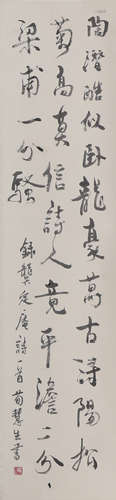 陶潛酷似臥龍豪萬古潯陽松
菊高莫信詩人竟平澹二分
梁甫一分騷
錄龔定庵詩一首荀慧生書